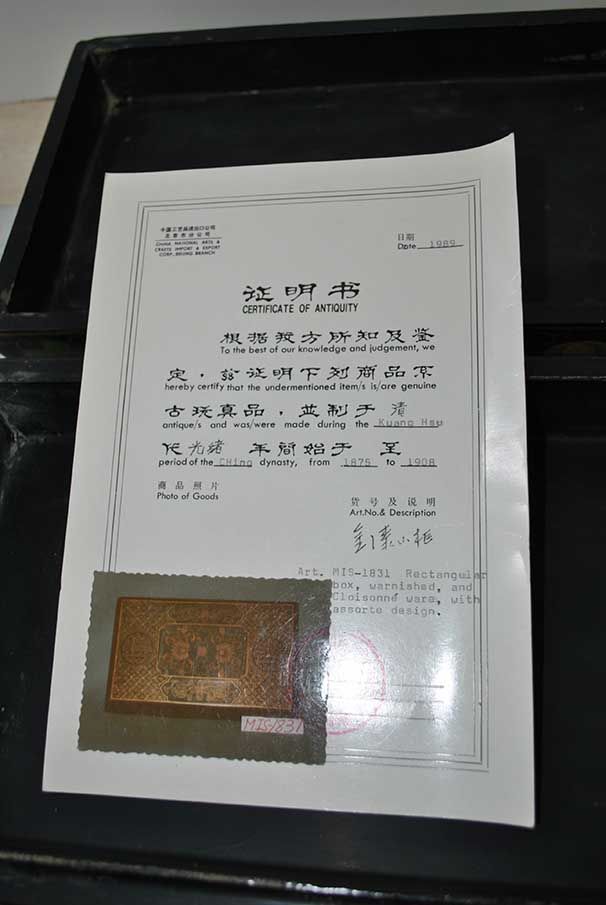 中国工艺品进出口公司
北京市分公司
CHINA NATIONAL ARTS &
CRAFTS IMPORT & EXPORT
CORP., BEIJING BRANCH
日期
Date 1989
证明书
CERTIFICATE OF ANTIQUITY
根据我方所知及鉴
To the best of our knowledge and judgement, we
定，兹证明下列商品系
hereby certify that the undermentioned item/s is/are genuine
古玩真品，並制于 清
antique/s and was/were made during the Kuang Hsu
代 光绪 年间始于 至
period of the CHing dynasty, from 1875 to 1908
商品照片
Photo of Goods
货号及说明
Art.No.& Description
Art. MIS-1831 Rectangular
box, warnished, and
Cloisonné ware, with
assorte design.
MIS1831